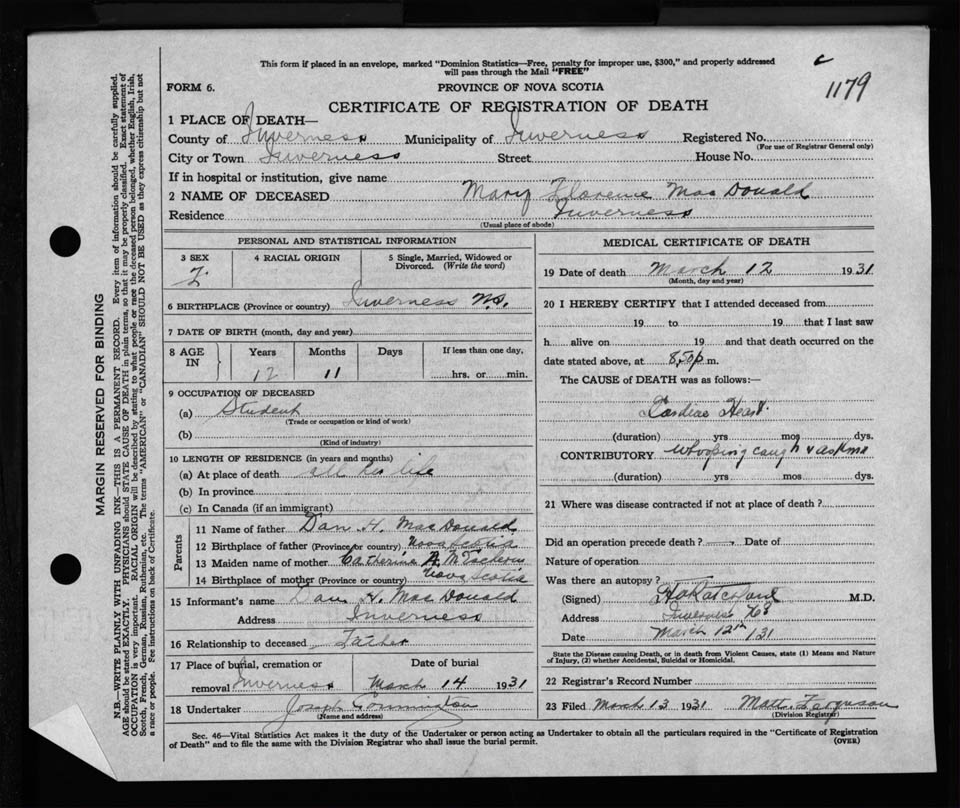 This form if placed in an envelope, marked "Dominion Statistics—Free, penalty for improper use, $300," and properly addressed
will pass through the Mail "FREE"
1179
FORM 6.
PROVINCE OF NOVA SCOTIA
CERTIFICATE OF REGISTRATION OF DEATH
1 PLACE OF DEATH—
County of Inverness Municipality of Inverness Registered No.
(For use of Registrar General only)
City or Town Inverness Street House No.
If in hospital or institution, give name
2 NAME OF DECEASED Mary Florence MacDonald
Residence Inverness
(Usual place of abode)
PERSONAL AND STATISTICAL INFORMATION
3 SEX 4 RACIAL ORIGIN 5 Single, Married, Widowed or
Divorced. (Write the word)
F
6 BIRTHPLACE (Province or country) Inverness N.S.
7 DATE OF BIRTH (month, day and year)
8 AGE IN Years Months Days If less than one day,
12 11 hrs. or min.
9 OCCUPATION OF DECEASED
(a) Student
(Trade or occupation or kind of work)
(b)
(Kind of industry)
10 LENGTH OF RESIDENCE (in years and months)
(a) At place of death all her life
(b) In province
(c) In Canada (if an immigrant)
Parents
11 Name of father Dan H. MacDonald
12 Birthplace of father (Province or country) Nova Scotia
13 Maiden name of mother Catherine A.
14 Birthplace of mother (Province or country) Nova Scotia
15 Informant's name Dan H. MacDonald
Address Inverness
16 Relationship to deceased Father
17 Place of burial, cremation or Date of burial
removal Inverness March 14 1931
18 Undertaker Joseph
(Name and address)
MEDICAL CERTIFICATE OF DEATH
19 Date of death March 12 1931
(Month, day and year)
20 I HEREBY CERTIFY that I attended deceased from
19 to 19 that I last saw
h alive on 19 and that death occurred on the
date stated above, at 8,50p m.
The CAUSE of DEATH was as follows:—
Cardiac Heart.
(duration) yrs mos dys.
CONTRIBUTORY Whooping caugh & askma
(duration) yrs mos dys.
21 Where was disease contracted if not at place of death?
Did an operation precede death? Date of
Nature of operation
Was there an autopsy?
(Signed) M.D.
Address Inverness N.S.
Date March 12th 131
State the Disease causing Death, or in death from Violent Causes, state (1) Means and Nature
of Injury, (2) whether Accidental, Suicidal or Homicidal.
22 Registrar's Record Number
23 Filed March 13 1931 Matt. Ferguson
(Division Registrar)
Sec. 46—Vital Statistics Act makes it the duty of the Undertaker or person acting as Undertaker to obtain all the particulars required in the "Certificate of Registration
of Death" and to file the same with the Division Registrar who shall issue the burial permit.
(OVER)
MARGIN RESERVED FOR BINDING
N.B.—WRITE PLAINLY WITH UNFADING INK—THIS IS A PERMANENT RECORD. Every item of information should be carefully supplied.
AGE should be stated EXACTLY. PHYSICIANS should STATE CAUSE OF DEATH in plain terms, so that it may be properly classified. Exact statement of
OCCUPATION is very important. RACIAL ORIGIN will be described by stating to what people or race the deceased person belonged, whether English, Irish,
Scotch, French, German, Russian, Ruthenian, etc. The terms "AMERICAN" or "CANADIAN" SHOULD NOT BE USED as they express citizenship but not
a race or people. Fee instructions on back of Certificate.